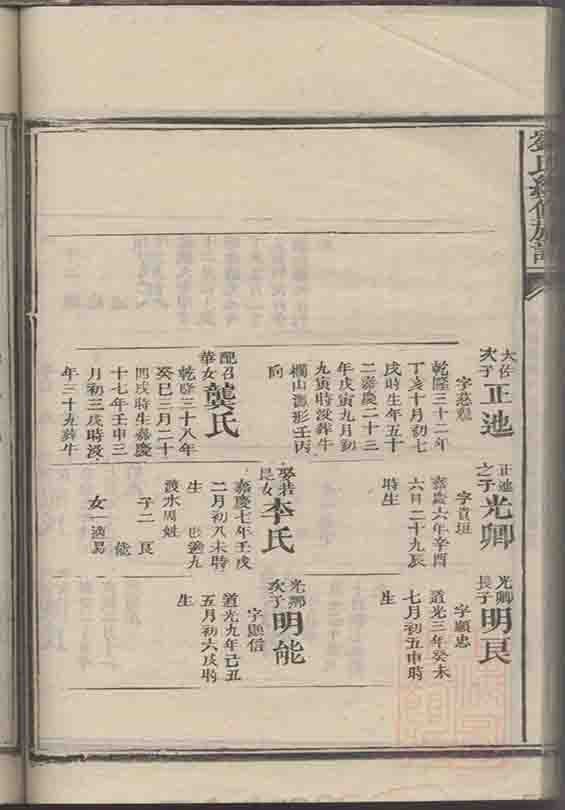 大佐
次子
正池
字蒸梨
乾隆三十二年
丁亥十月初七
戌時生年五十
二嘉慶二十三
年戊寅九月初
九寅時沒葬牛
欄山壽形壬丙
向
配召
華女
龔氏
乾隆三十八年
癸巳三月二十
四戌時生嘉慶
十七年壬申三
月初三戌時沒
年三十九葬牛
正池
之子
光卿
字貴垣
嘉慶六年辛酉
六月二十九辰
時生
娶若
昆女
李氏
嘉慶七年壬戌
二月初八未時
生
適九
渡水周姓
子二
良
能
女一適易
光卿
長子
明良
字顯忠
道光三年癸未
七月初五申時
生
光卿
次子
明能
字顯信
道光九年己丑
五月初六戌時
生